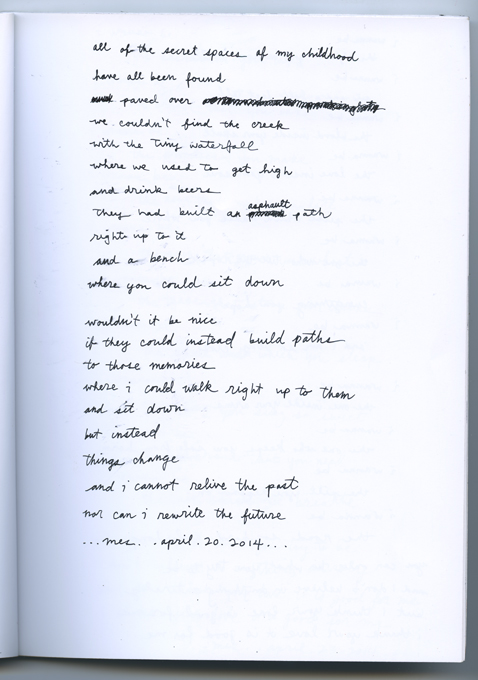 all of the secret spaces of my childhood
have all been found
paved over
we couldn't find the creek
with the tiny waterfall
where we used to get high
and drink beers
they had built an asphault path
right up to it
and a bench
where you could sit down
wouldn't it be nice
if they could instead build paths
to those memories
where i could walk right up to them
and sit down
but instead
things change
and i cannot relive the past
nor can i rewrite the future
...mes. .april.20.2014...